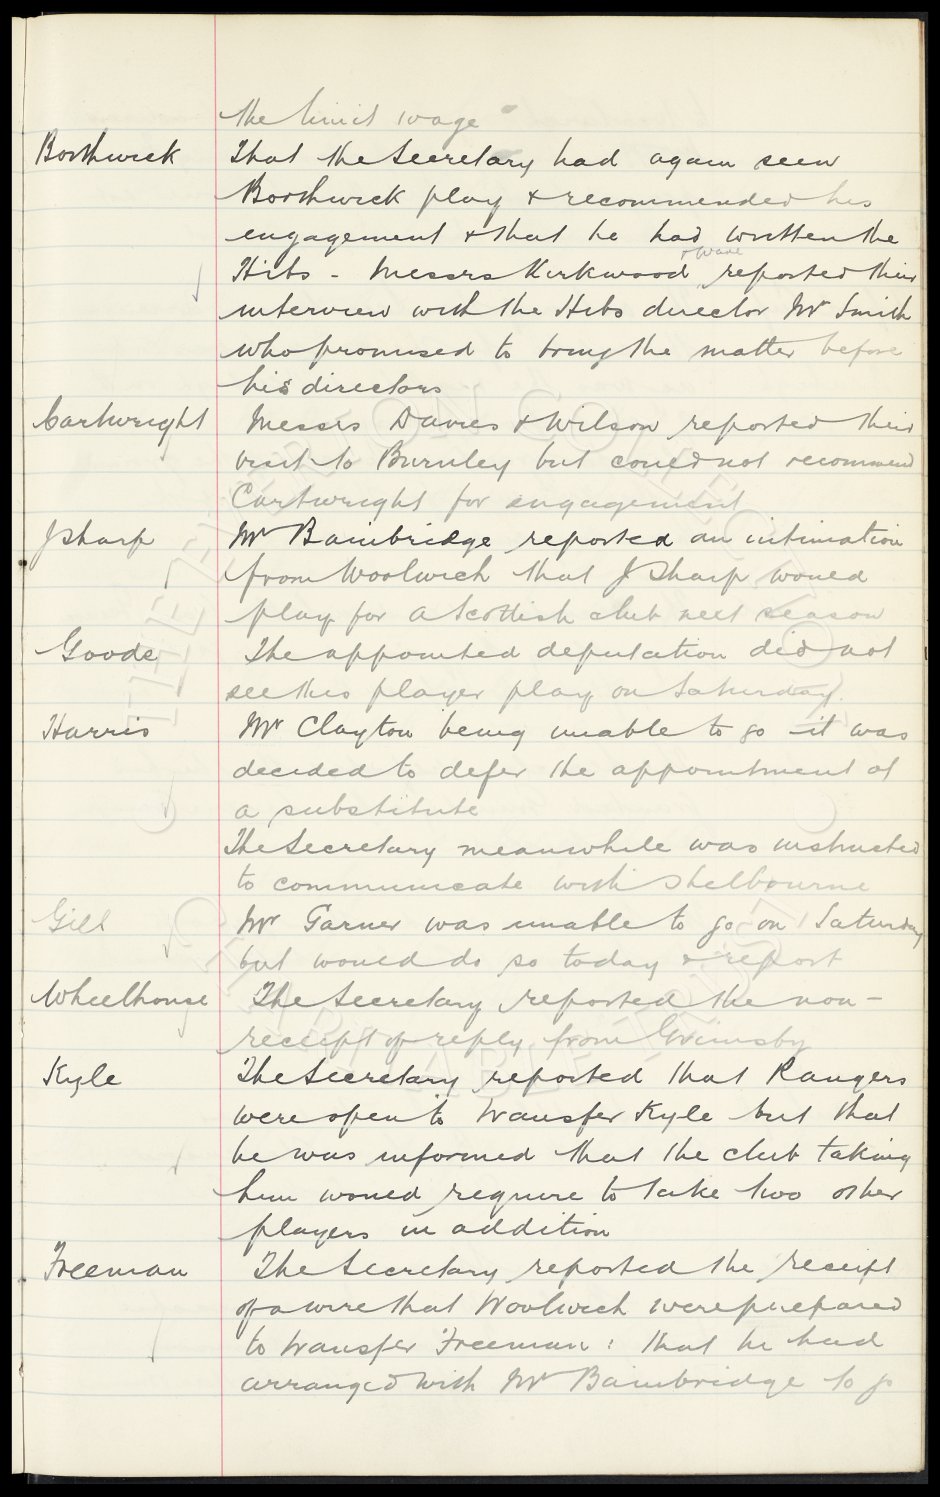 the limit wage
Borthwick That the Secretary had again seen
Borthwick play & recommended his
engagement & that he had written the
& Wade
Hibs - Messrs Kirkwood reported their
interview with the Hibs director Mr Smith
who promised to bring the matter before
his directors
Cartwright Messrs Davies & Wilson reported their
visit to Burnley but could not recommend
Cartwright for engagement
J Sharp Mr Bainbridge reported an intimation
from Woolwich that J Sharp would
play for a Scottish club next season
Goode The appointed deputation did not
see this player play on Saturday.
Harris Mr Clayton being unable to go it was
decided to defer the appointment of
a substitute
The Secretary meanwhile was instructed
to communicate with Shelbourne
Gill Mr Garner was unable to go on Saturday
but would do so today & report
Wheelhouse The Secretary reported the non-
receipt of reply from Grimsby
Kyle The Secretary reported that Rangers
were open to transfer Kyle but that
he was informed that the club taking
him would require to take two other
players in addition
Freeman The Secretary reported the receipt
of a wire that Woolwich were prepared
to transfer Freeman: that he had
arranged with Mr Bainbridge to go
EVERTON COLLECTION
CHARITABLE TRUST